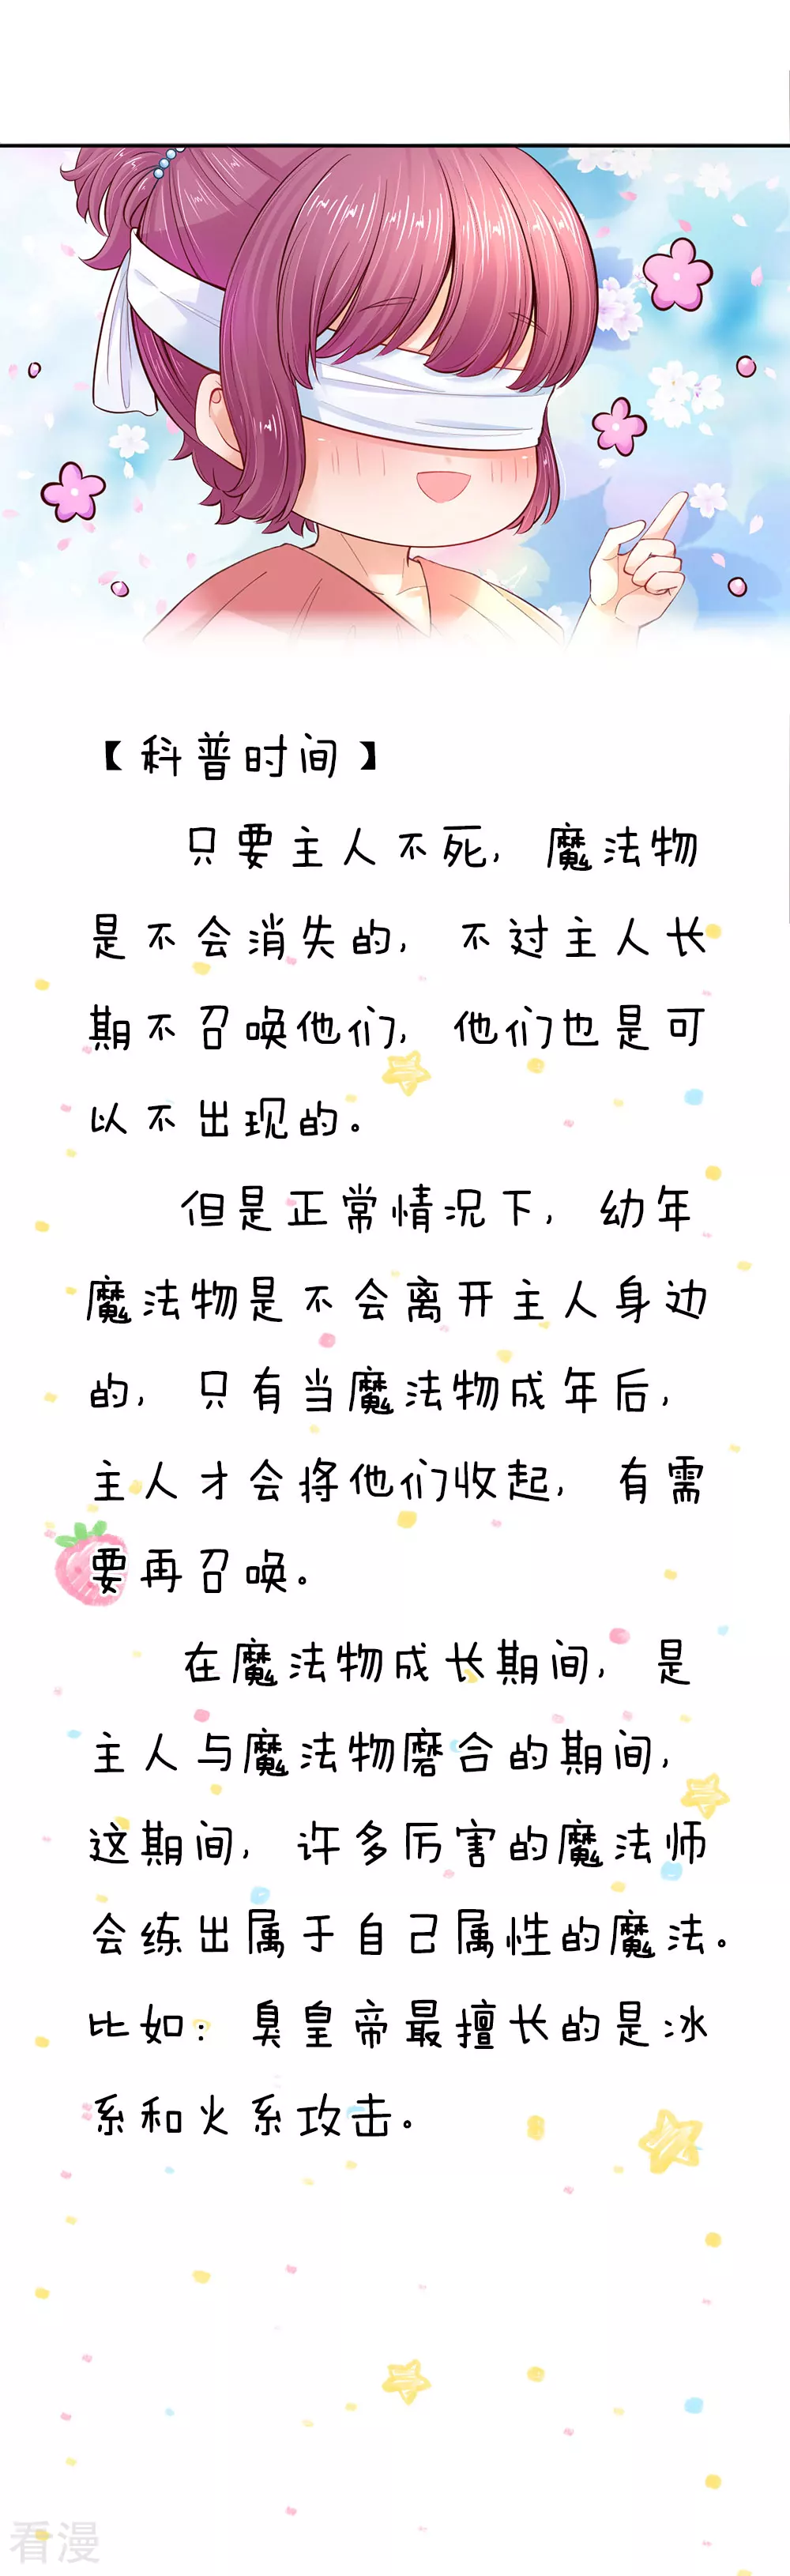 【科普时间】
只要主人不死，魔法物
是不会消失的，不过主人长
期不召唤他们，他们也是可
以不出现的。
但是正常情况下，幼年
魔法物是不会离开主人身边
的，只有当魔法物成年后，
主人才会将他们收起，有需
要再召唤。
在魔法物成长期间，是
主人与魔法物磨合的期间，
这期间，许多厉害的魔法师
会练出属于自己属性的魔法。
比如：臭皇帝最擅长的是冰
系和火系攻击。
看漫